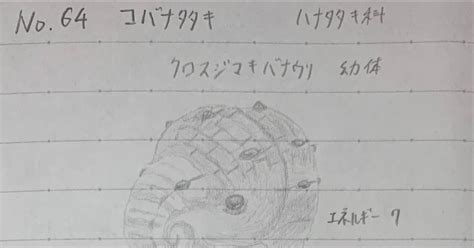 No.64 コバナタタキ ハナタタキ科
クロスジマキバナウリ 幼体
エネルギー 7